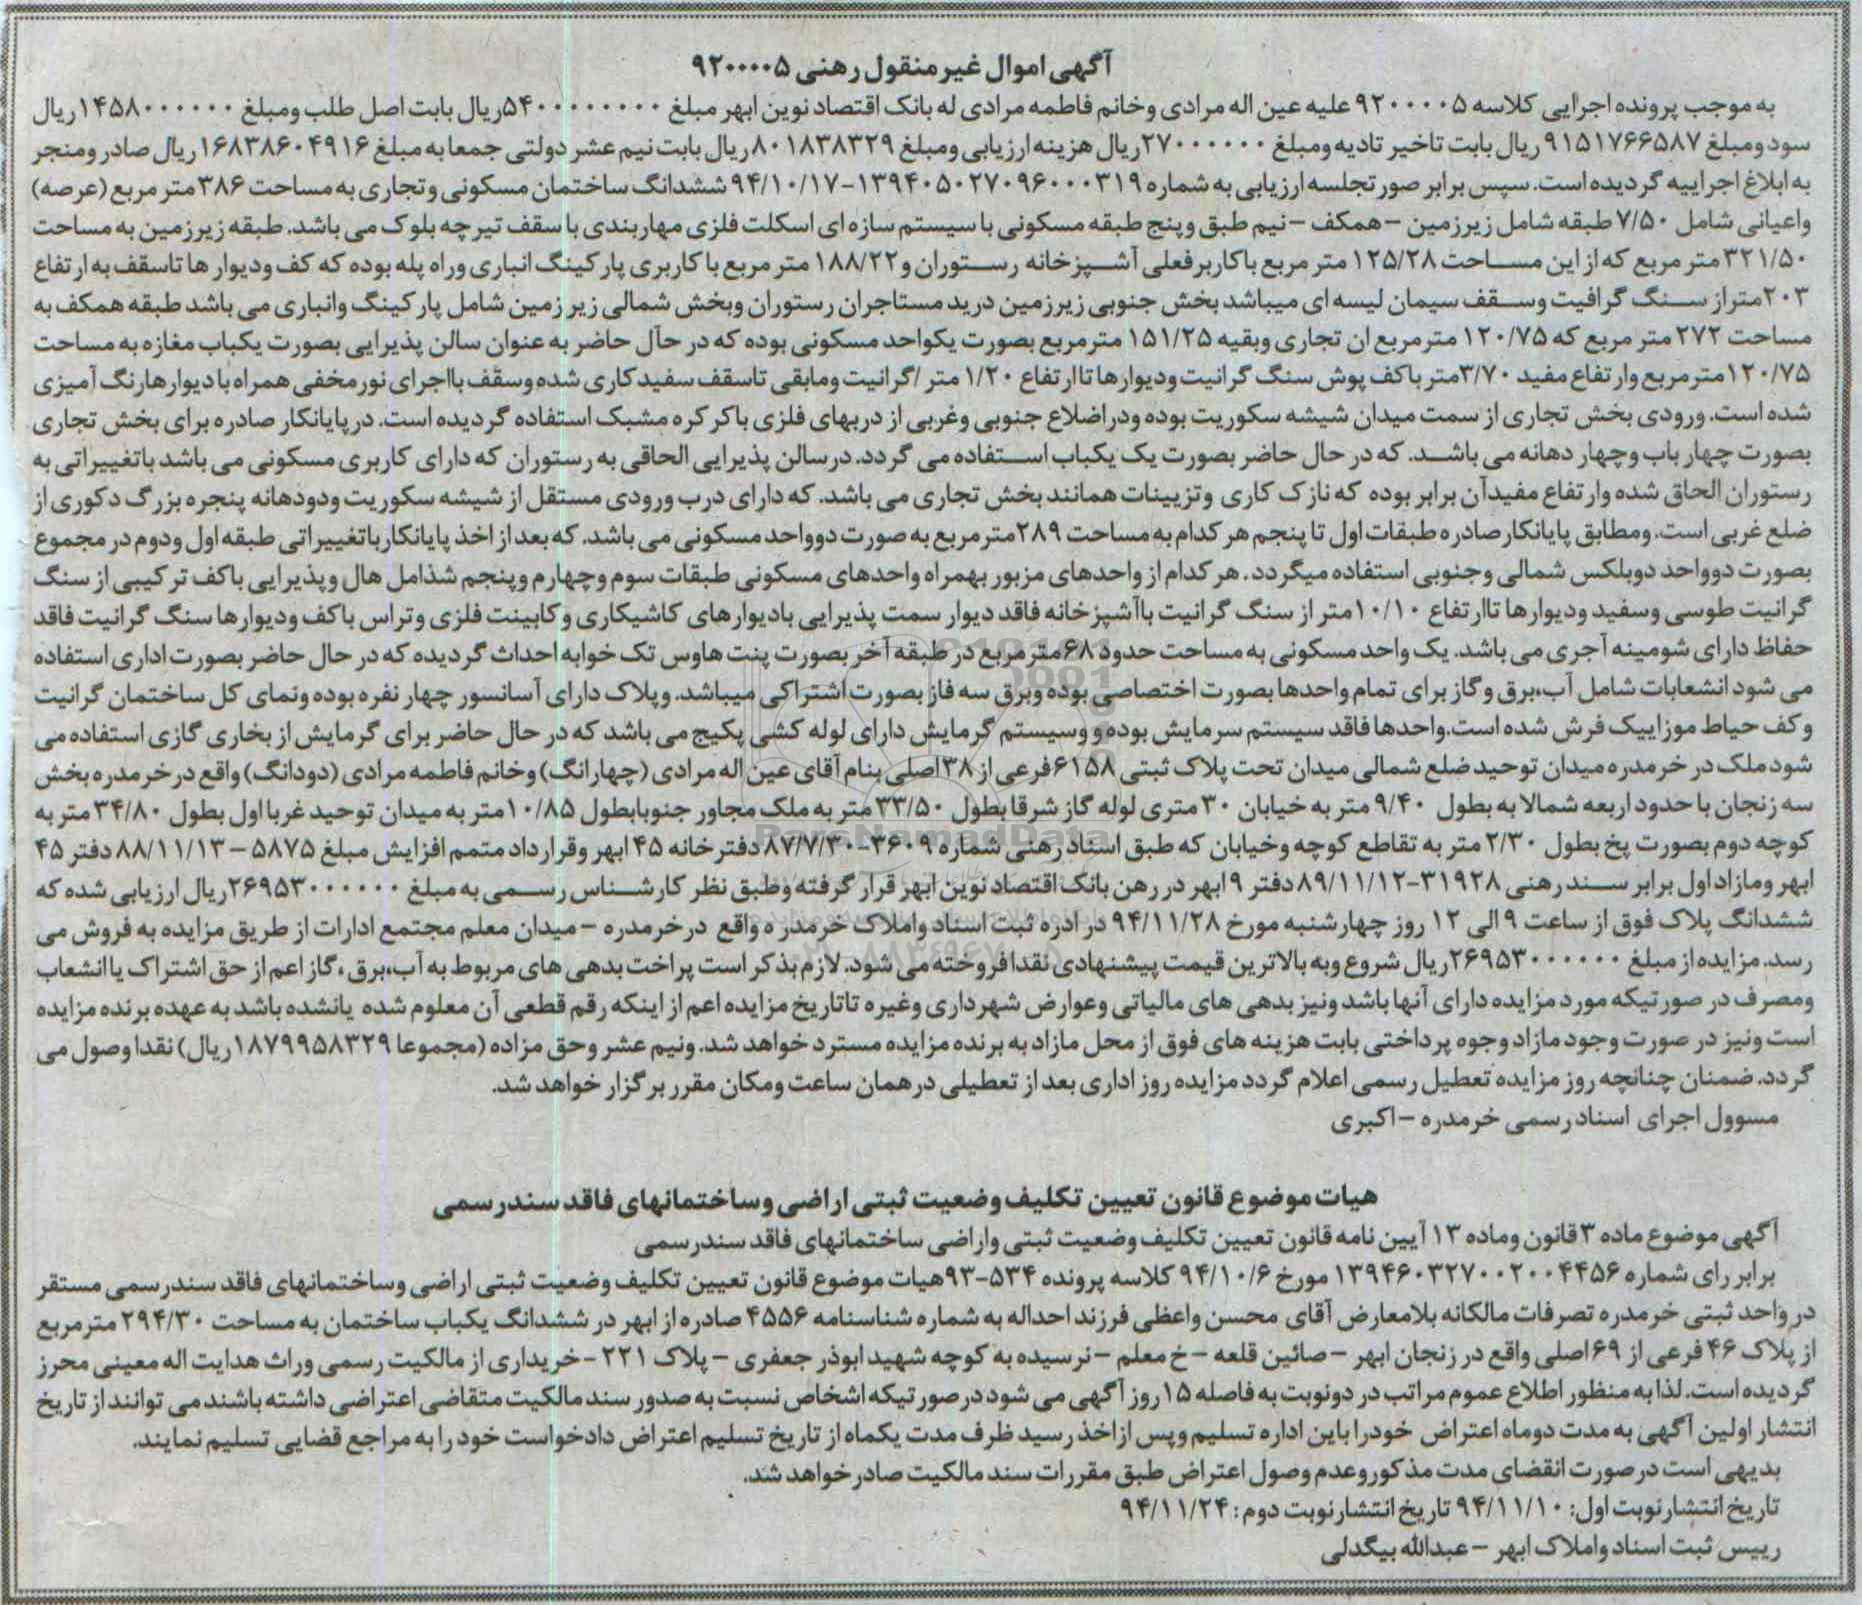 آگهی اموال غیر منقول رهنی ۹۲۰۰۰۰۵
به موجب پرونده اجرایی کلاسه ۹۲۰۰۰۰۵ علیه عین اله مرادی وخانم فاطمه مرادی له بانک اقتصاد نوین ابهر مبلغ ۵۴۰۰۰۰۰۰۰۰ریال بابت اصل طلب ومبلغ ۱۴۵۸۰۰۰۰۰۰ریال
سود ومبلغ ۹۱۵۱۷۶۶۵۸۷ ریال بابت تاخیر تادیه ومبلغ ۲۷۰۰۰۰۰۰ریال هزینه ارزیابی ومبلغ ۸۰۱۸۳۸۳۲۹ریال بابت نیم عشر دولتی جمعا به مبلغ ۱۶۸۳۸۶۰۴۹۱۶ریال صادر ومنجر
به ابلاغ اجراییه گردیده است. سپس برابر صورتجلسه ارزیابی به شماره ۱۳۹۴۰۵۰۲۷۰۹۶۰۰۰۳۱۹-۹۴/۱۰/۱۷ ششدانگ ساختمان مسکونی وتجاری به مساحت ۳۸۶ متر مربع (عرصه)
واعیانی شامل ۷/۵۰ طبقه شامل زیرزمین –همکف –نیم طبق وپنج طبقه مسکونی با سیستم سازه ای اسکلت فلزی مهاربندی با سقف تیرچه بلوک می باشد. طبقه زیرزمین به مساحت
۳۲۱/۵۰ متر مربع که از این مساحت ۱۲۵/۲۸ متر مربع باکاربرفعلی آشپزخانه رستوران و ۱۸۸/۲۲ متر مربع با کاربری پارکینگ انباری وراه پله بوده که کف ودیوار ها تاسقف به ارتفاع
۲۰۳متراز سنگ گرافیت وسقف سیمان لیسه ای میباشد بخش جنوبی زیرزمین درید مستاجران رستوران وبخش شمالی زیر زمین شامل پارکینگ وانباری می باشد طبقه همکف به
مساحت ۲۷۲ متر مربع که ۱۲۰/۷۵ مترمربع ان تجاری وبقیه ۱۵۱/۲۵ مترمربع بصورت یکواحد مسکونی بوده که در حال حاضر به عنوان سالن پذیرایی بصورت یکباب مغازه به مساحت
۱۲۰/۷۵مترمربع وارتفاع مفید ۳/۷۰متر باکف پوش سنگ گرانیت ودیوارها تاارتفاع ۱/۲۰ متر /گرانیت ومابقی تاسقف سفیدکاری شده وسقف بااجرای نورمخفی همراه با دیوارهارنگ آمیزی
شده است. ورودی بخش تجاری از سمت میدان شیشه سکوریت بوده ودراضلاع جنوبی وغربی از دربهای فلزی باکرکره مشبک استفاده گردیده است. درپایانکار صادره برای بخش تجاری
بصورت چهار باب وچهار دهانه می باشد. که در حال حاضر بصورت یک یکباب استفاده می گردد. درسالن پذیرایی الحاقی به رستوران که دارای کاربری مسکونی می باشد باتغییراتی به
رستوران الحاق شده وارتفاع مفیدآن برابر بوده که نازک کاری وتزیینات همانند بخش تجاری می باشد. که دارای درب ورودی مستقل از شیشه سکوریت ودودهانه پنجره بزرگ دکوری از
ضلع غربی است. ومطابق پایانکار صادره طبقات اول تا پنجم هر کدام به مساحت ۲۸۹مترمربع به صورت دوواحد مسکونی می باشد. که بعد از اخذ پایانکارباتغییراتی طبقه اول ودوم در مجموع
بصورت دوواحد دوبلکس شمالی وجنوبی استفاده میگردد. هر کدام از واحدهای مزبور بهمراه واحدهای مسکونی طبقات سوم وچهارم وپنجم شذامل هال وپذیرایی باکف ترکیبی از سنگ
گرانیت طوسی وسفید ودیوارها تاارتفاع ۱۰/۱۰متر از سنگ گرانیت باآشپزخانه فاقد دیوار سمت پذیرایی بادیوارهای کاشیکاری وکابینت فلزی وتراس باکف ودیوارها سنگ گرانیت فاقد
حفاظ دارای شومینه آجری می باشد. یک واحد مسکونی به مساحت حدود ۶۸مترمربع در طبقه آخر بصورت پنت هاوس تک خوابه احداث گردیده که در حال حاضر بصورت اداری استفاده
می شود انشعابات شامل آب،برق وگاز برای تمام واحدها بصورت اختصاصی بوده وبرق سه فاز بصورت اشتراکی میباشد. وپلاک دارای آسانسور چهار نفره بوده ونمای کل ساختمان گرانیت
وکف حیاط موزاییک فرش شده است.واحدها فاقد سیستم سرمایش بوده و وسیستم گرمایش دارای لوله کشی پکیج می باشد که در حال حاضر برای گرمایش از بخاری گازی استفاده می
شود ملک در خرمدره میدان توحید ضلع شمالی میدان تحت پلاک ثبتی ۶۱۵۸فرعی از ۳۸اصلی بنام آقای عین اله مرادی (چهارانگ) وخانم فاطمه مرادی (دودانگ) واقع در خرمدره بخش
سه زنجان با حدود اربعه شمالا به بطول ۹/۴۰ متر به خیابان ۳۰ متری لوله گاز شرقا بطول ۳۳/۵۰ متر به ملک مجاور جنوبابطول ۱۰/۸۵متر به میدان توحید غربا اول بطول ۳۴/۸۰ متر به
کوچه دوم بصورت پخ بطول ۲/۳۰ متر به تقاطع کوچه وخیابان که طبق اسناد رهنی شماره ۳۶۰۹-۸۷/۷/۳۰دفترخانه ۴۵ ابهر وقرارداد متمم افزایش مبلغ ۵۸۷۵ –۸۸/۱۱/۱۳ دفتر ۴۵
ابهر ومازاد اول برابر سند رهنی ۳۱۹۲۸-۸۹/۱۱/۱۲دفتر ۹ ابهر در رهن بانک اقتصاد نوین ابهر قرار گرفته وطبق نظر کارشناس رسمی به مبلغ ۲۶۹۵۳۰۰۰۰۰۰ریال ارزیابی شده که
ششدانگ پلاک فوق از ساعت ۹ الی ۱۲ روز چهارشنبه مورخ ۹۴/۱۱/۲۸ در ادره ثبت اسناد واملاک خرمدره واقع درخرمدره –میدان معلم مجتمع ادارات از طریق مزایده به فروش می
رسد. مزایده از مبلغ ۲۶۹۵۳۰۰۰۰۰۰ریال شروع وبه بالاترین قیمت پیشنهادی نقدا فروخته می شود. لازم بذکر است پراخت بدهی های مربوط به آب،برق،گاز اعم از حق اشتراک یا انشعاب
ومصرف در صورتیکه مورد مزایده دارای آنها باشد ونیز بدهی های مالیاتی وعوارض شهرداری وغیره تاتاریخ مزایده اعم از اینکه رقم قطعی آن معلوم شده یانشده باشد به عهده برنده مزایده
است ونیز در صورت وجود مازاد وجوه پرداختی بابت هزینه های فوق از محل مازاد به برنده مزایده مسترد خواهد شد. ونیم عشر وحق مزاده (مجموعا ۱۸۷۹۹۵۸۳۲۹ریال) نقدا وصول می
گردد. ضمنان چنانچه روز مزایده تعطیل رسمی اعلام گردد مزایده روز اداری بعد از تعطیلی درهمان ساعت ومکان مقرر برگزار خواهد شد.
مسوول اجرای اسناد رسمی خرمدره –اکبری
هیات موضوع قانون تعیین تکلیف وضعیت ثبتی اراضی وساختمانهای فاقد سندرسمی
آگهی موضوع ماده ۳قانون وماده ۱۳ آیین نامه قانون تعیین تکلیف وضعیت ثبتی واراضی ساختمانهای فاقد سندرسمی
برابر رای شماره ۱۳۹۴۶۰۳۲۷۰۰۲۰۰۴۴۵۶ مورخ ۹۴/۱۰/۶ کلاسه پرونده ۵۳۴-۹۳هیات موضوع قانون تعیین تکلیف وضعیت ثبتی اراضی وساختمانهای فاقد سندرسمی مستقر
در واحد ثبتی خرمدره تصرفات مالکانه بلامعارض آقای محسن واعظی فرزند احداله به شماره شناسنامه ۴۵۵۶ صادره از ابهر در ششدانگ یکباب ساختمان به مساحت ۲۹۴/۳۰ مترمربع
از پلاک ۴۶ فرعی از ۶۹اصلی واقع در زنجان ابهر –صائین قلعه –خ معلم –نرسیده به کوچه شهید ابوذر جعفری – پلاک ۲۲۱ -خریداری از مالکیت رسمی وراث هدایت اله معینی محرز
گردیده است. لذا به منظور اطلاع عموم مراتب در دونوبت به فاصله ۱۵روز آگهی می شود درصورتیکه اشخاص نسبت به صدور سند مالکیت متقاضی اعتراضی داشته باشند می توانند از تاریخ
انتشار اولین آگهی به مدت دوماه اعتراض خودرا باین اداره تسلیم وپس ازاخذ رسید ظرف مدت یکماه از تاریخ تسلیم اعتراض دادخواست خود را به مراجع قضایی تسلیم نمایند.
بدیهی است درصورت انقضای مدت مذکوروعدم وصول اعتراض طبق مقررات سند مالکیت صادر خواهد شد.
تاریخ انتشارنوبت اول: ۹۴/۱۱/۱۰ تاریخ انتشارنوبت دوم: ۹۴/۱۱/۲۴
رییس ثبت اسناد واملاک ابهر –عبدالله بیگدلی
ParsNamadData